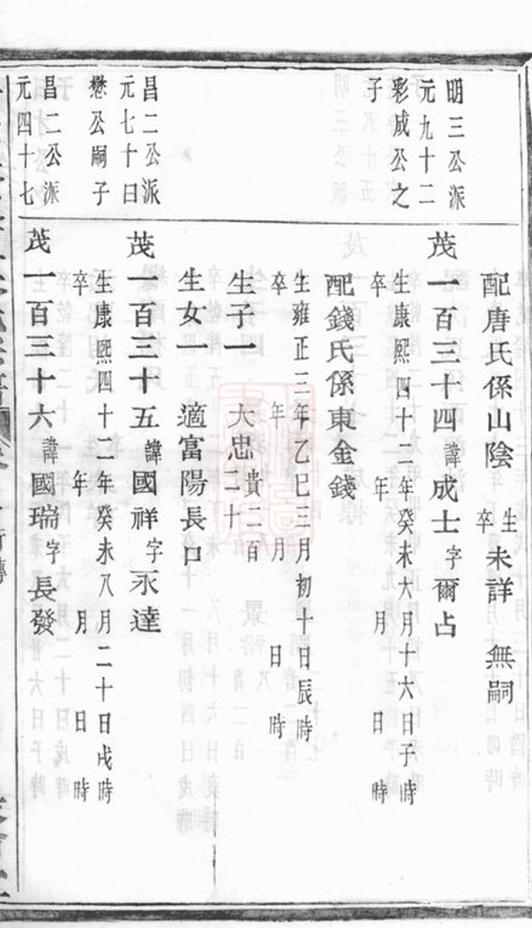 配唐氏係山陰 生卒未詳 無嗣
明三公派
元九十二
彩成公之
子
茂一百三十四諱成士字爾占
生康熙四十二年癸未六月十六日子時
卒 年 月 日 時
配錢氏係東金錢
生雍正三年乙巳三月初十日辰時
卒 年 月 日 時
生子一 大忠貴二百二十
生女一 適富陽長口
昌二公派
元七十曰
懋公嗣子
茂一百三十五諱國祥字永達
生康熙四十二年癸未八月二十日戌時
卒 年 月 日 時
昌二公派
元四十七
茂一百三十六諱國瑞字長發